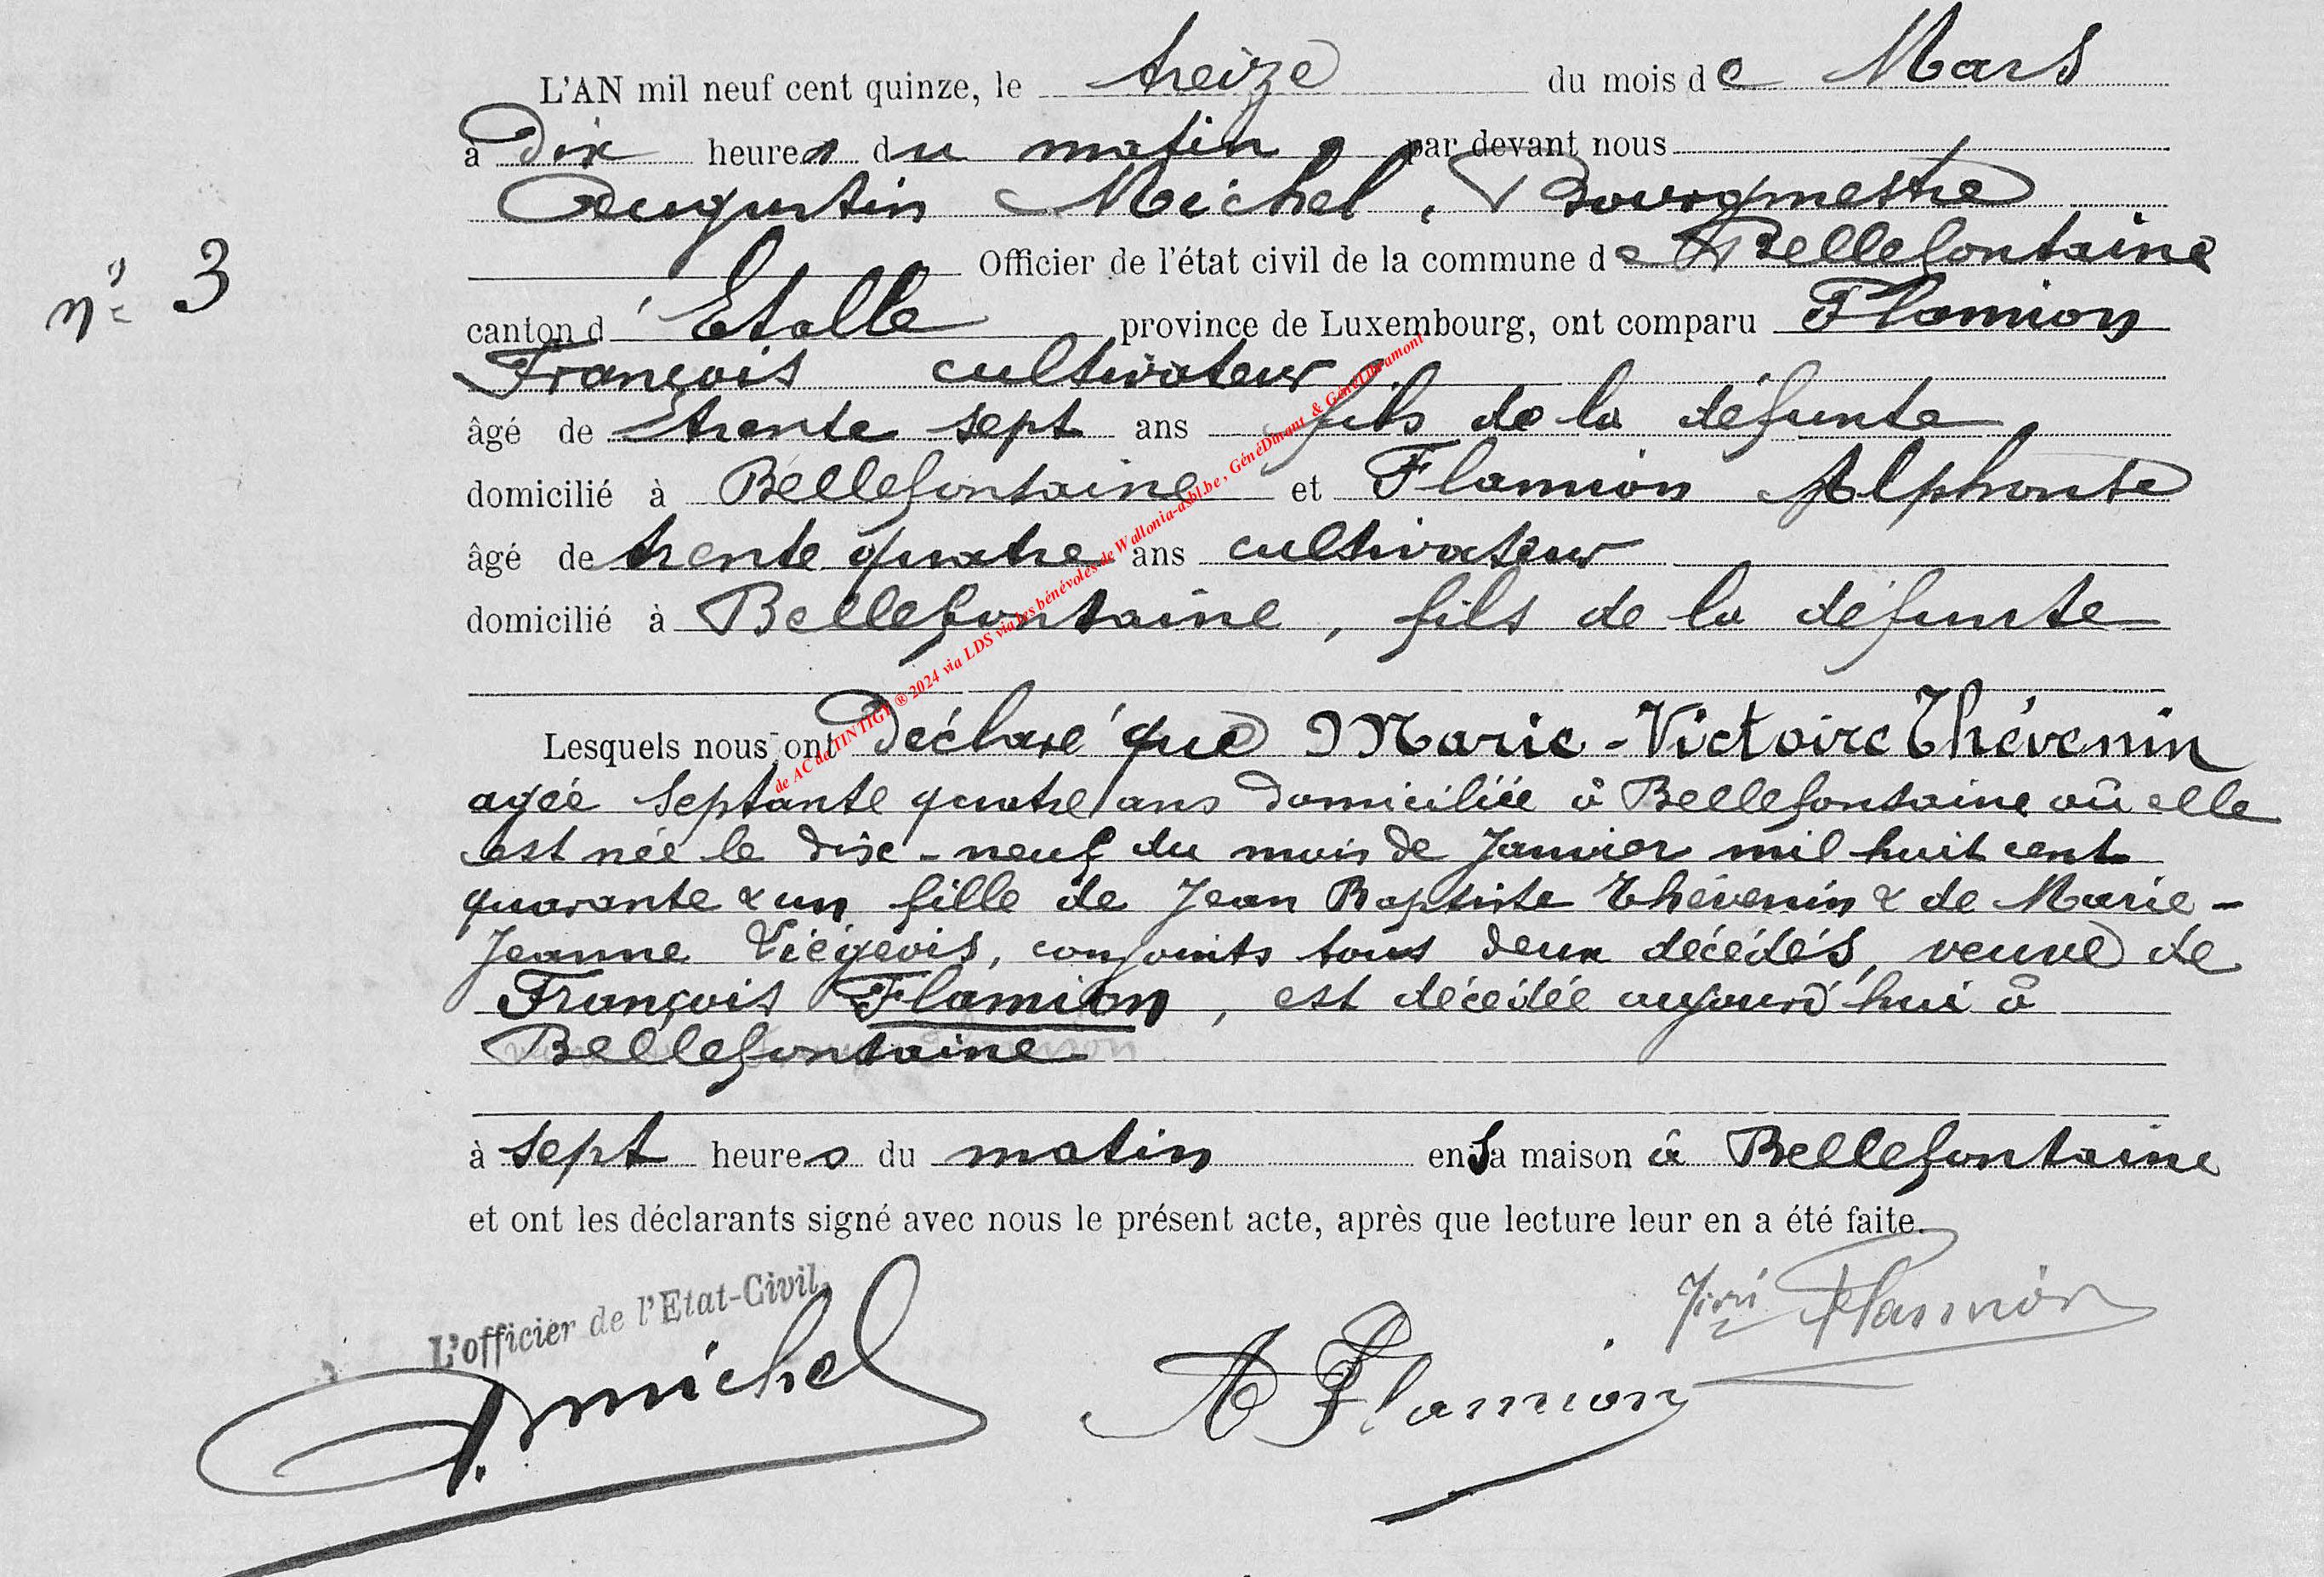 L'AN mil neuf cent quinze, le treize du mois de Mars
à Dix heures du matin, par devant nous
Augustin Michel, Bourgmestre
n° 3
Officier de l'état civil de la commune de Bellefontaine
canton d'Etalle province de Luxembourg, ont comparu Flamion
François cultivateur
âgé de trente sept ans fils de la défunte
domicilié à Bellefontaine et Flamion Alphonse
âgé de trente quatre ans cultivateur
domicilié à Bellefontaine, fils de la défunte
Lesquels nous ont Déclaré que Marie-Victoire Thévenin
agée septante quatre ans domiciliée à Bellefontaine où elle
est née le dix-neuf du mois de Janvier mil huit cent
quarante & un fille de Jean Baptiste Thévenin & de Marie-
Jeanne Liégeois, conjoints tous deux décédés, veuve de
François Flamion, est décédée aujourd'hui à
Bellefontaine
à sept heures du matin en sa maison à Bellefontaine
et ont les déclarants signé avec nous le présent acte, après que lecture leur en a été faite.
L'officier de l'Etat-Civil,
A. Michel
A Flamion
Flamion
de AC de TINTIGY ® 2024 via LDS via les bénévoles de Wallonia-asbl.be, GénéDinant & GénéLibramont